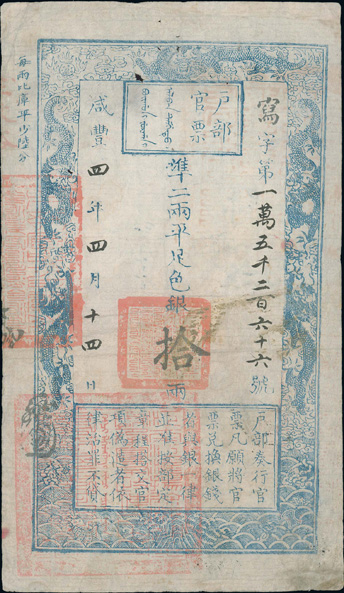 戶部
官票
寫字第一萬五千二百六十六號
準二兩平足色銀拾兩
咸豐四年四月十四日
每兩比庫平少陸分
戶部奏行官
票凡願將官
票兌換銀錢
者與銀一律
並准按部定
章程搭交官
項偽造者依
律治罪不貸